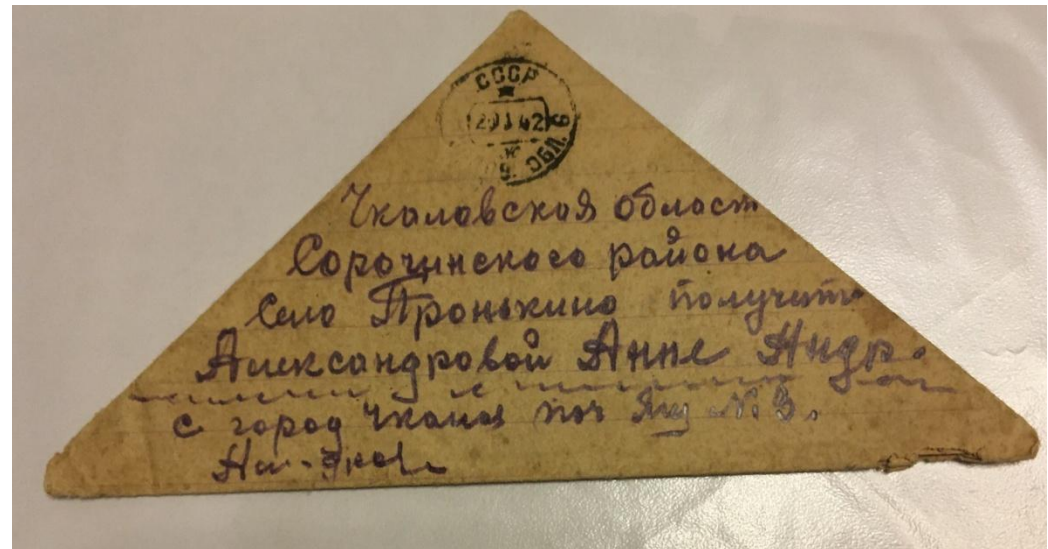 СССР
42
ОБЛ. 6
Чкаловская област
Сорочинского района
Село Пронькино получить
Александровой Анне Андр.
с город Чкалов поч Ящ № 3.